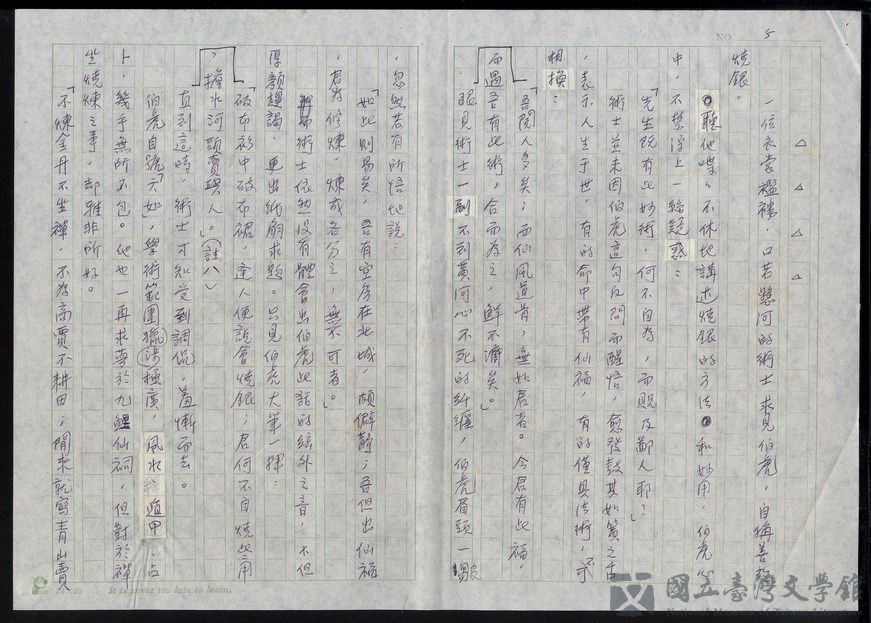 5
NO.
△ △ △ △
一位衣裳襤褸，口若懸河的術士求見伯虎，自稱善於
燒銀。
聽他喋喋不休地講述燒銀的方法和妙用，伯虎心
中，不禁浮上一絲疑惑：
「先生既有此妙術，何不自為，而貺及鄙人耶？」
術士並未因伯虎這句反問而醒悟，愈發鼓其如簧之舌
，表示人生于世，有的命中帶有仙福，有的僅具法術，不
相換：
「吾閱人多矣；而仙風道骨，無如君者。今君有此福，
而遇吾有此術，合而為之，鮮不濟矣。」
眼見術士一副不到黃河心不死的糾纏，伯虎眉頭一皺
，忽然若有所悟地說：
「如此則易矣，吾有空房在北城，頗僻靜；吾但出仙福
，君為修煉，煉成各分之，無不可者。」
術士依然沒有體會出伯虎此話的絃外之音，不但
厚顏趨謁，更出紙扇求題。只見伯虎大筆一揮：
「破布衫中破布裙，逢人便說會燒銀；君何不自燒些用
，擔水河頭賣與人。」（註八）
直到這時，術士才知受到調侃，羞慚而去。
伯虎自號「六如」，學術範圍獵涉極廣，風水、遁甲、占
卜，幾乎無所不包。他也一再求夢於九鯉仙祠，但對於禪
坐燒煉之事，卻雅非所好。
「不煉金丹不坐禪，不為商賈不耕田；閒來就寫青山賣
It is never too late to learn.
國立臺灣文學館